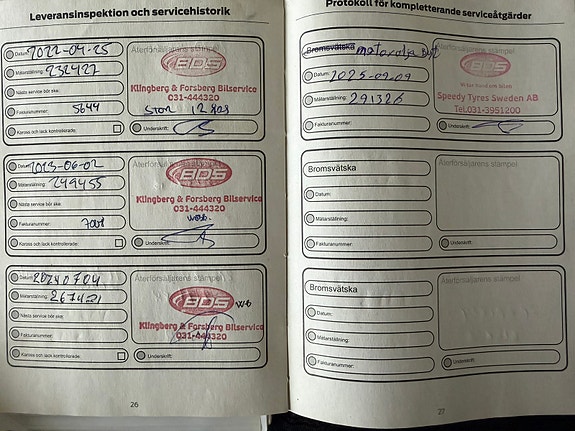 Leveransinspektion och servicehistorik
Datum: 2022-04-25
Mätarställning: 232427
Nästa service bör ske:
Fakturanummer: 5644
Kaross och lack kontrollerade:
Återförsäljarens stämpel
BDS
Klingberg & Forsberg Bilservice
031-444320
STOR
Underskrift:
Datum: 2023-06-02
Mätarställning: 249455
Nästa service bör ske:
Fakturanummer:
Kaross och lack kontrollerade:
Återförsäljarens stämpel
BDS
Klingberg & Forsberg Bilservice
031-444320
Underskrift:
Datum: 20240704
Mätarställning:
Nästa service bör ske:
Fakturanummer:
Kaross och lack kontrollerade:
Återförsäljarens stämpel
BDS
Klingberg & Forsberg Bilservice
031-444320
Underskrift:
26
Protokoll för kompletterande serviceåtgärder
Bromsvätska motorolja Byte
Datum: 2025-09-09
Mätarställning: 291326
Fakturanummer:
Återförsäljarens stämpel
BDS
Speedy Tyres Sweden AB
Tel.031-3951200
Underskrift:
Bromsvätska
Datum:
Mätarställning:
Fakturanummer:
Återförsäljarens stämpel
Underskrift:
Bromsvätska
Datum:
Mätarställning:
Fakturanummer:
Återförsäljarens stämpel
Underskrift:
27